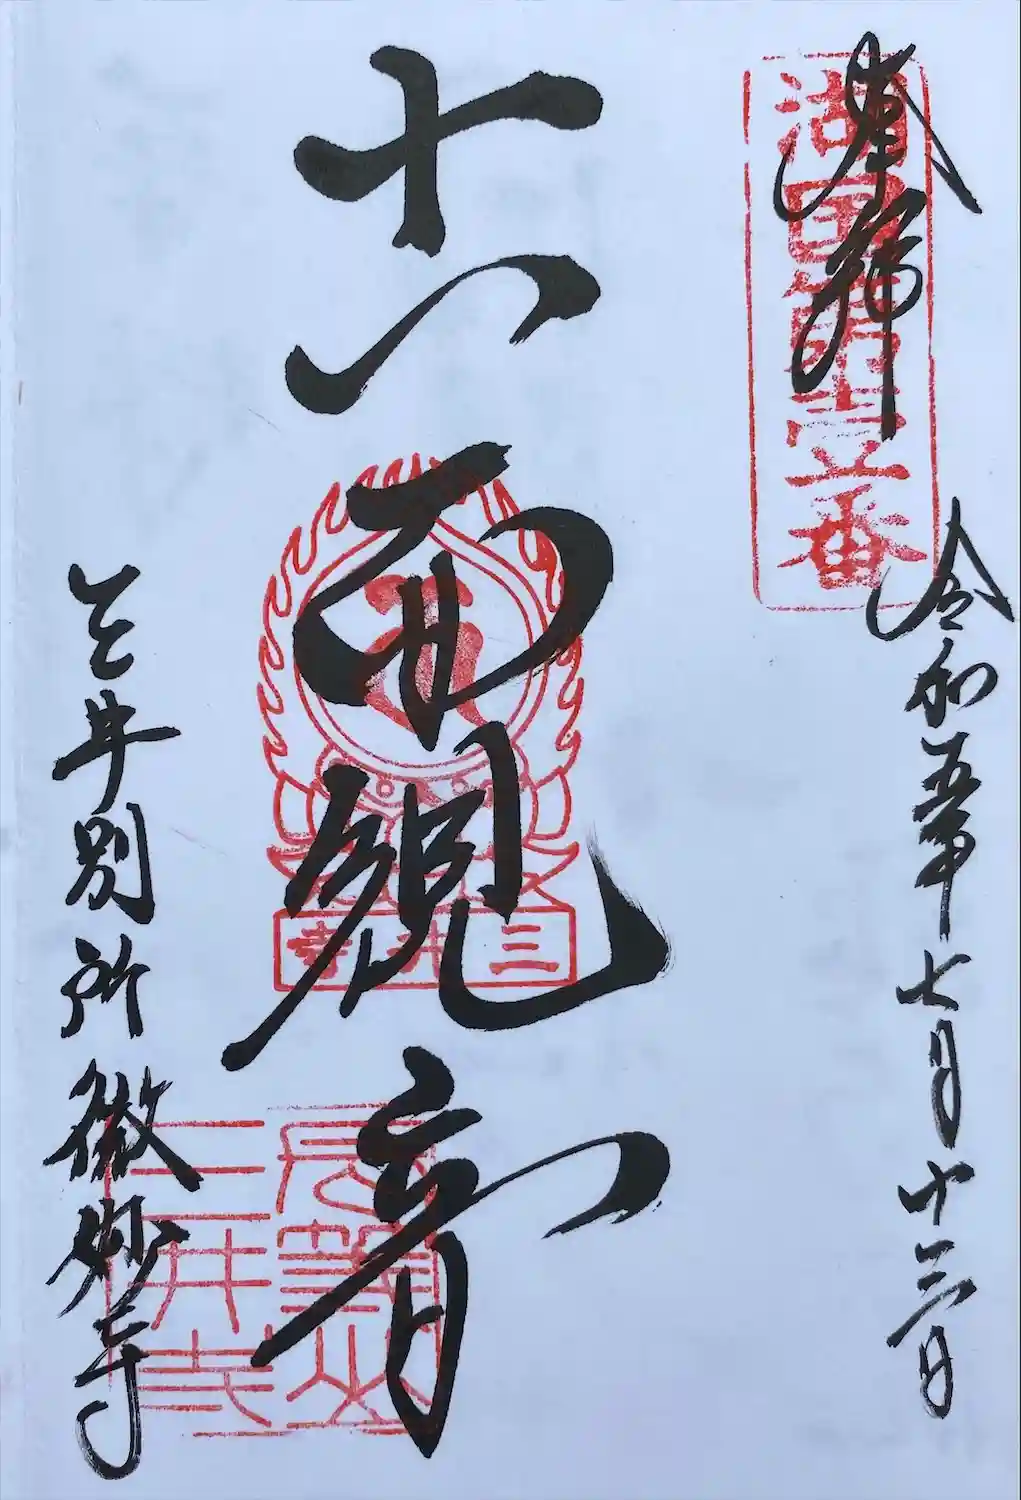 奉拝
湖国第壹番
令和五年七月十三日
十一面観音
三井寺
長等山
三井寺
三井別所微妙寺